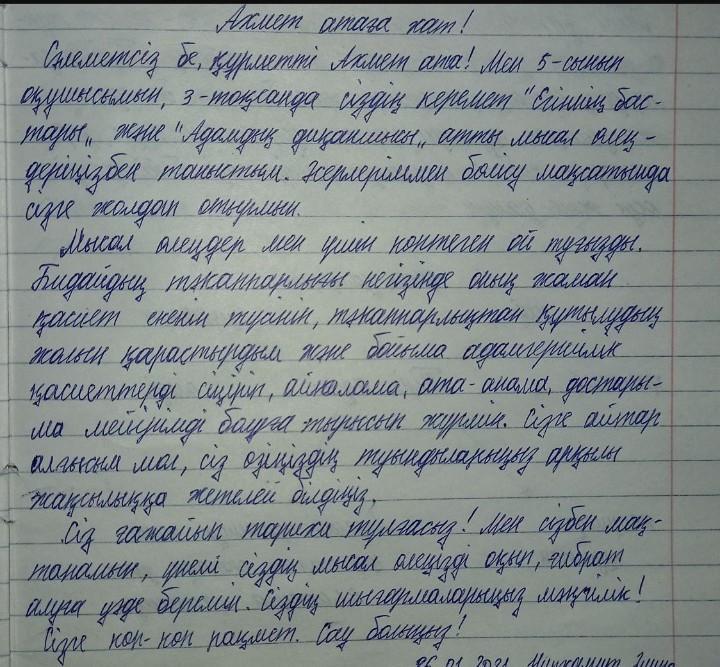 Ахмет атаға хат!
Сәлеметсіз бе, құрметті Ахмет ата! Мен 5-сынып
оқушысымын, 3-тоқсанда сіздің керемет "Егіннің бас-
тары" және "Адамдық диқаншысы" атты мысал өлең-
деріңізбен таныстым. Әсерлеріммен бөлісу мақсатында
сізге жолдап отырмын.
Мысал өлеңдер мен үшін көптеген ой туғызды.
Бидайдың тәкаппарлығы негізінде оның жаман
қасиет екенін түсініп, тәкаппарлықтан құтылудың
жолын қарастырдым және бойыма адамгершілік
қасиеттерді сіңіріп, айналама, ата-анама, достары-
ма мейірімді болуға тырысып жүрмін. Сізге айтар
алғысым мол, сіз өзіңіздің туындыларыңыз арқылы
жақсылыққа жетелей білдіңіз.
Сіз ғажайып тарихи тұлғасыз! Мен сізбен мақ-
танамын, үнемі сіздің мысал өлеңізді оқып, ғибрат
алуға уәде беремін. Сіздің шығармаларыңыз мәңгілік!
Сізге көп-көп рақмет. Сау болыңыз!
26.01.2021